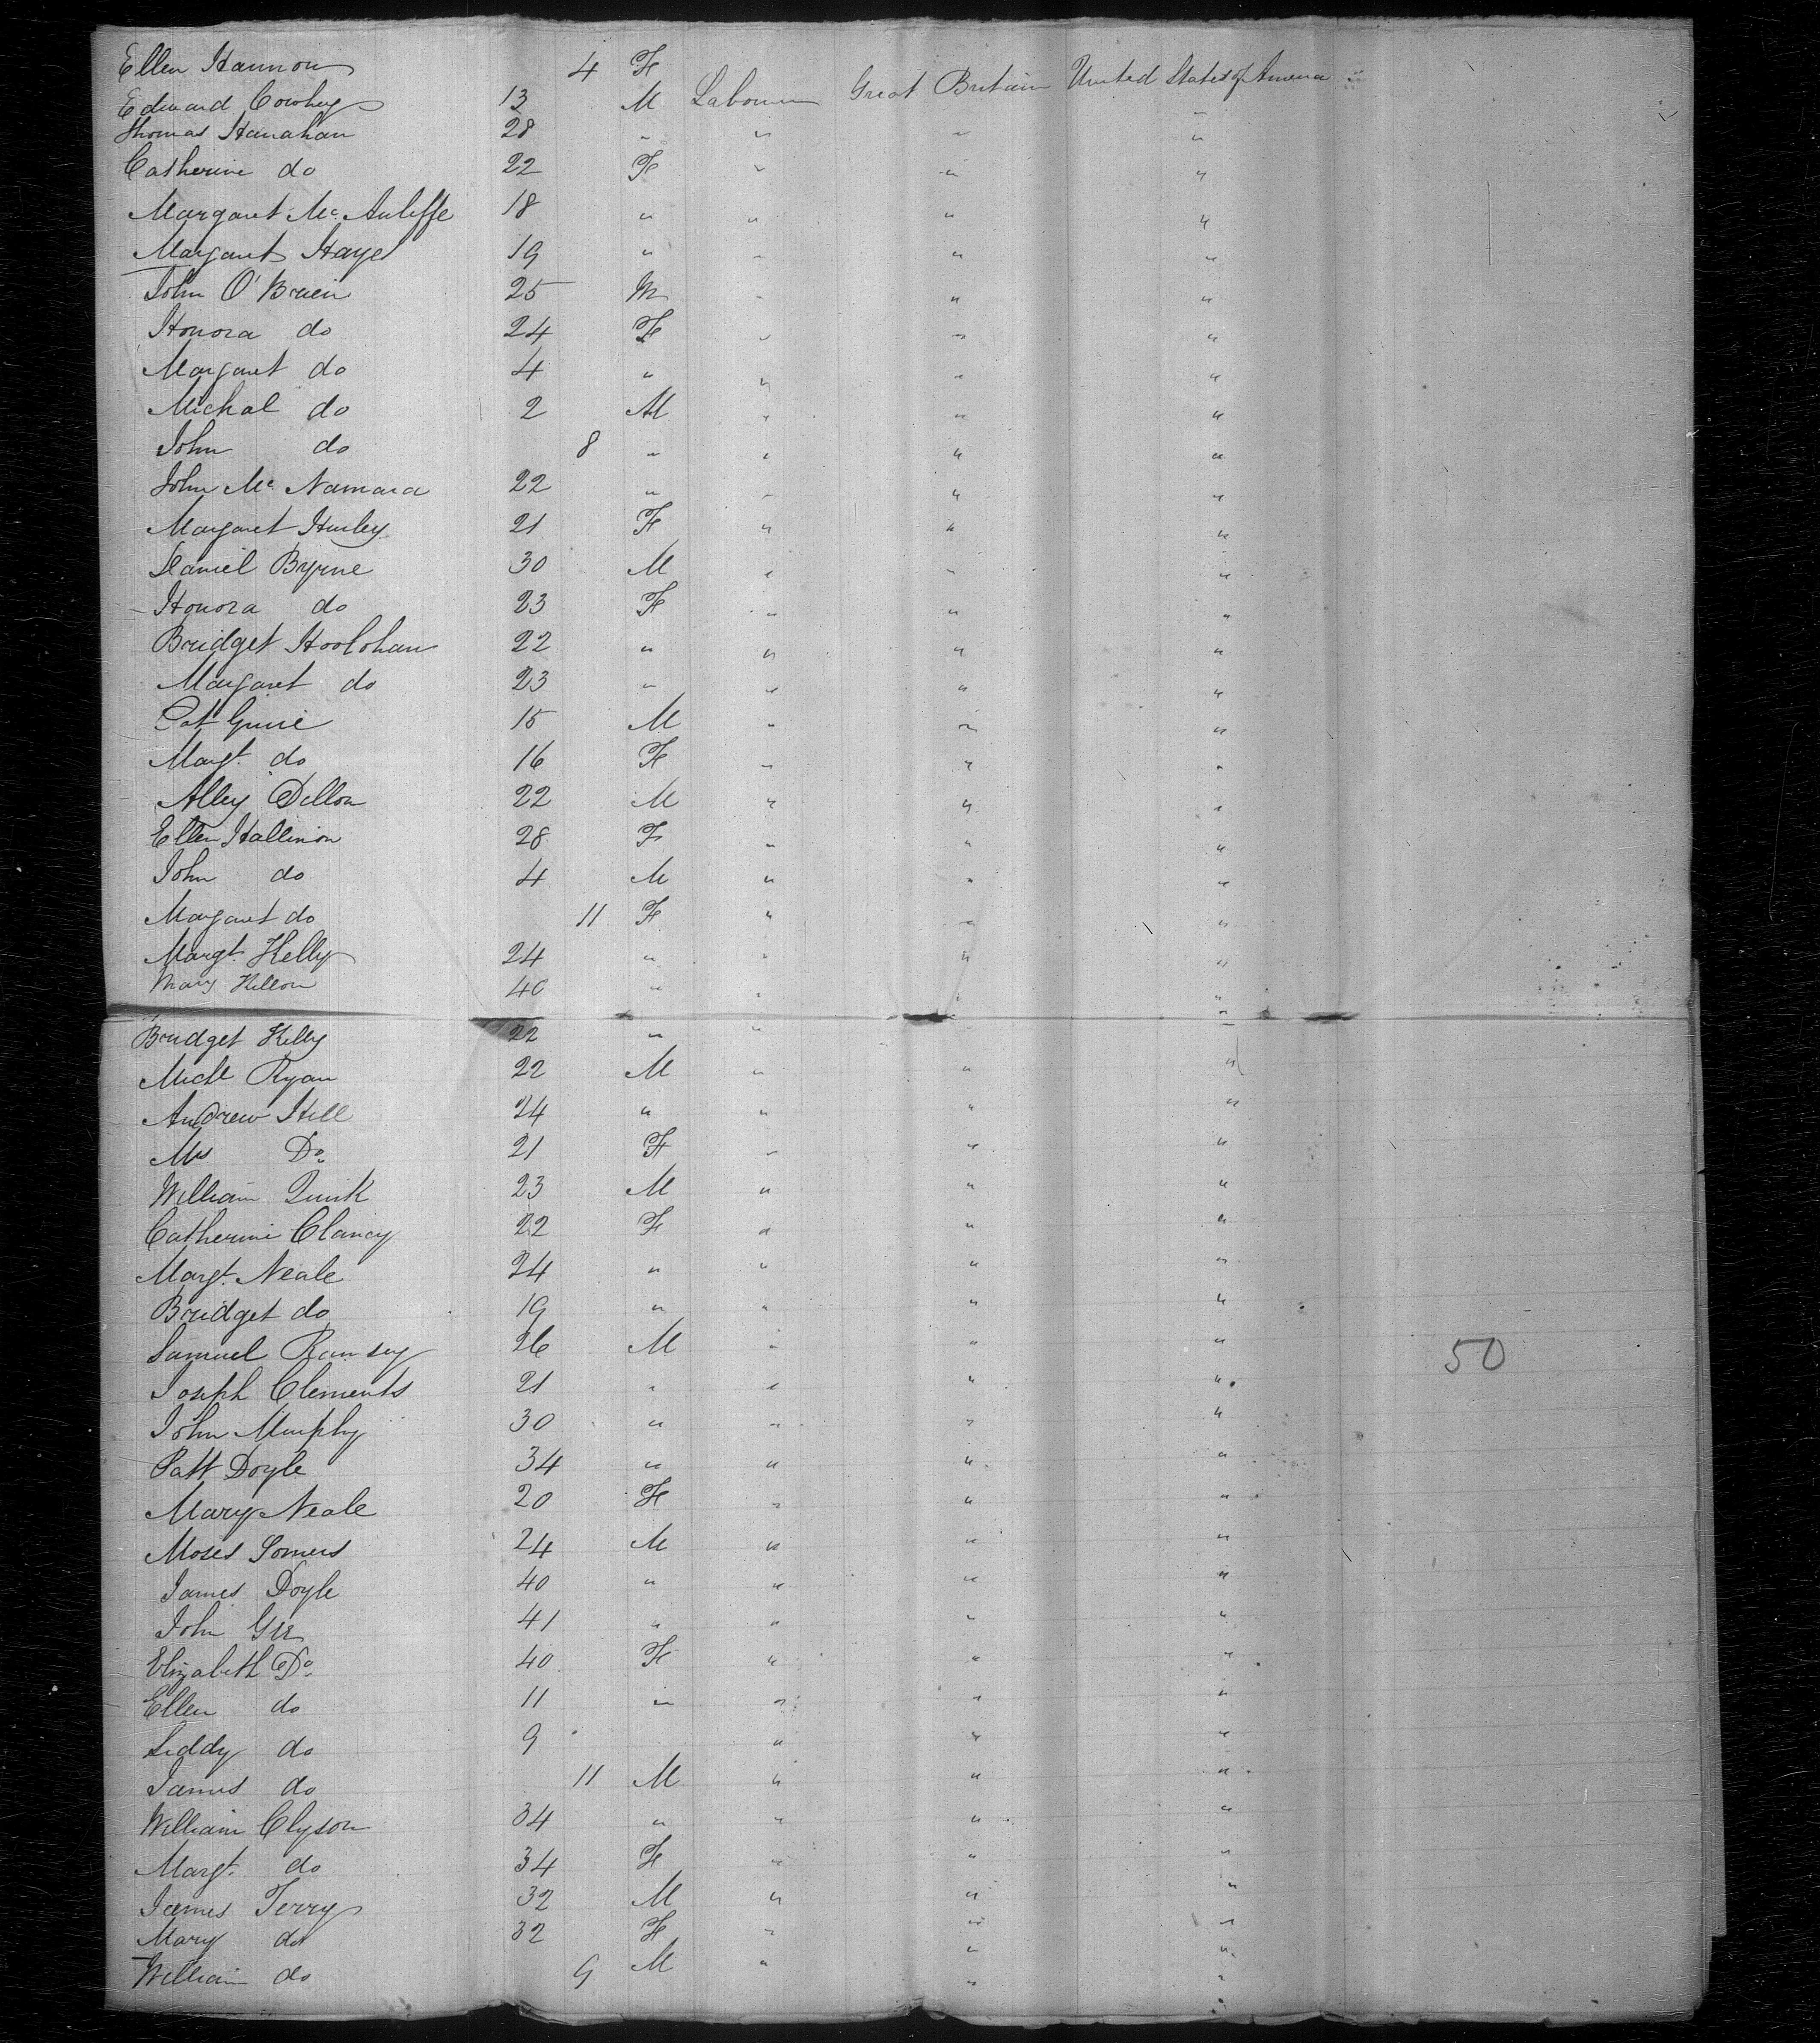 Ellen Hannon 4 F
Edward Cowhey 13 M Labourer Great Britain United States of America
Thomas Hanahan 28 " " " "
Catherine do 22 F " " "
Margaret Mc. Auliffe 18 " " " "
Margaret Hayes 19 " " " "
John O'Brien 25 M " " "
Honora do 24 F " " "
Margaret do 4 " " " "
Michal do 2 M " " "
John do 8 " " " "
John Mc Namara 22 " " " "
Margaret Hurley 21 F " " "
Daniel Byrne 30 M " " "
Honora do 23 F " " "
Bridget Hoolohan 22 " " " "
Margaret do 23 " " " "
Pat 15 M " " "
Margt. do 16 F " " "
Alley Dillon 22 M " " "
Ellen Hallinon 28 F " " "
John do 4 M " " "
Margaret do 11 F " " "
Margt. Kelly 24 " " " "
Mary 40 " " " "
Bridget Kelly 22 " " "
Michl Ryan 22 M " " "
Andrew Hill 24 " " " "
Mrs Do 21 F " " "
William Quirk 23 M " " "
Catherine Clancy 22 F " " "
Margt. Neale 24 " " " "
Bridget do 19 " " " "
Samuel Ramsey 26 M " " " 50
Joseph Clements 21 " " " "
John Murphy 30 " " " "
Patt Doyle 34 " " " "
Mary Neale 20 F " " "
Moses Somers 24 M " " "
James Doyle 40 " " " "
John 41 " " " "
Elizabeth Do 40 F " " "
Ellen do 11 " " " "
Liddy do 9 " " "
James do 11 M " " "
William Clyson 34 " " " "
Margt. do 34 F " " "
James Terry 32 M " " "
Mary do 32 F " " "
William do 9 M " " "